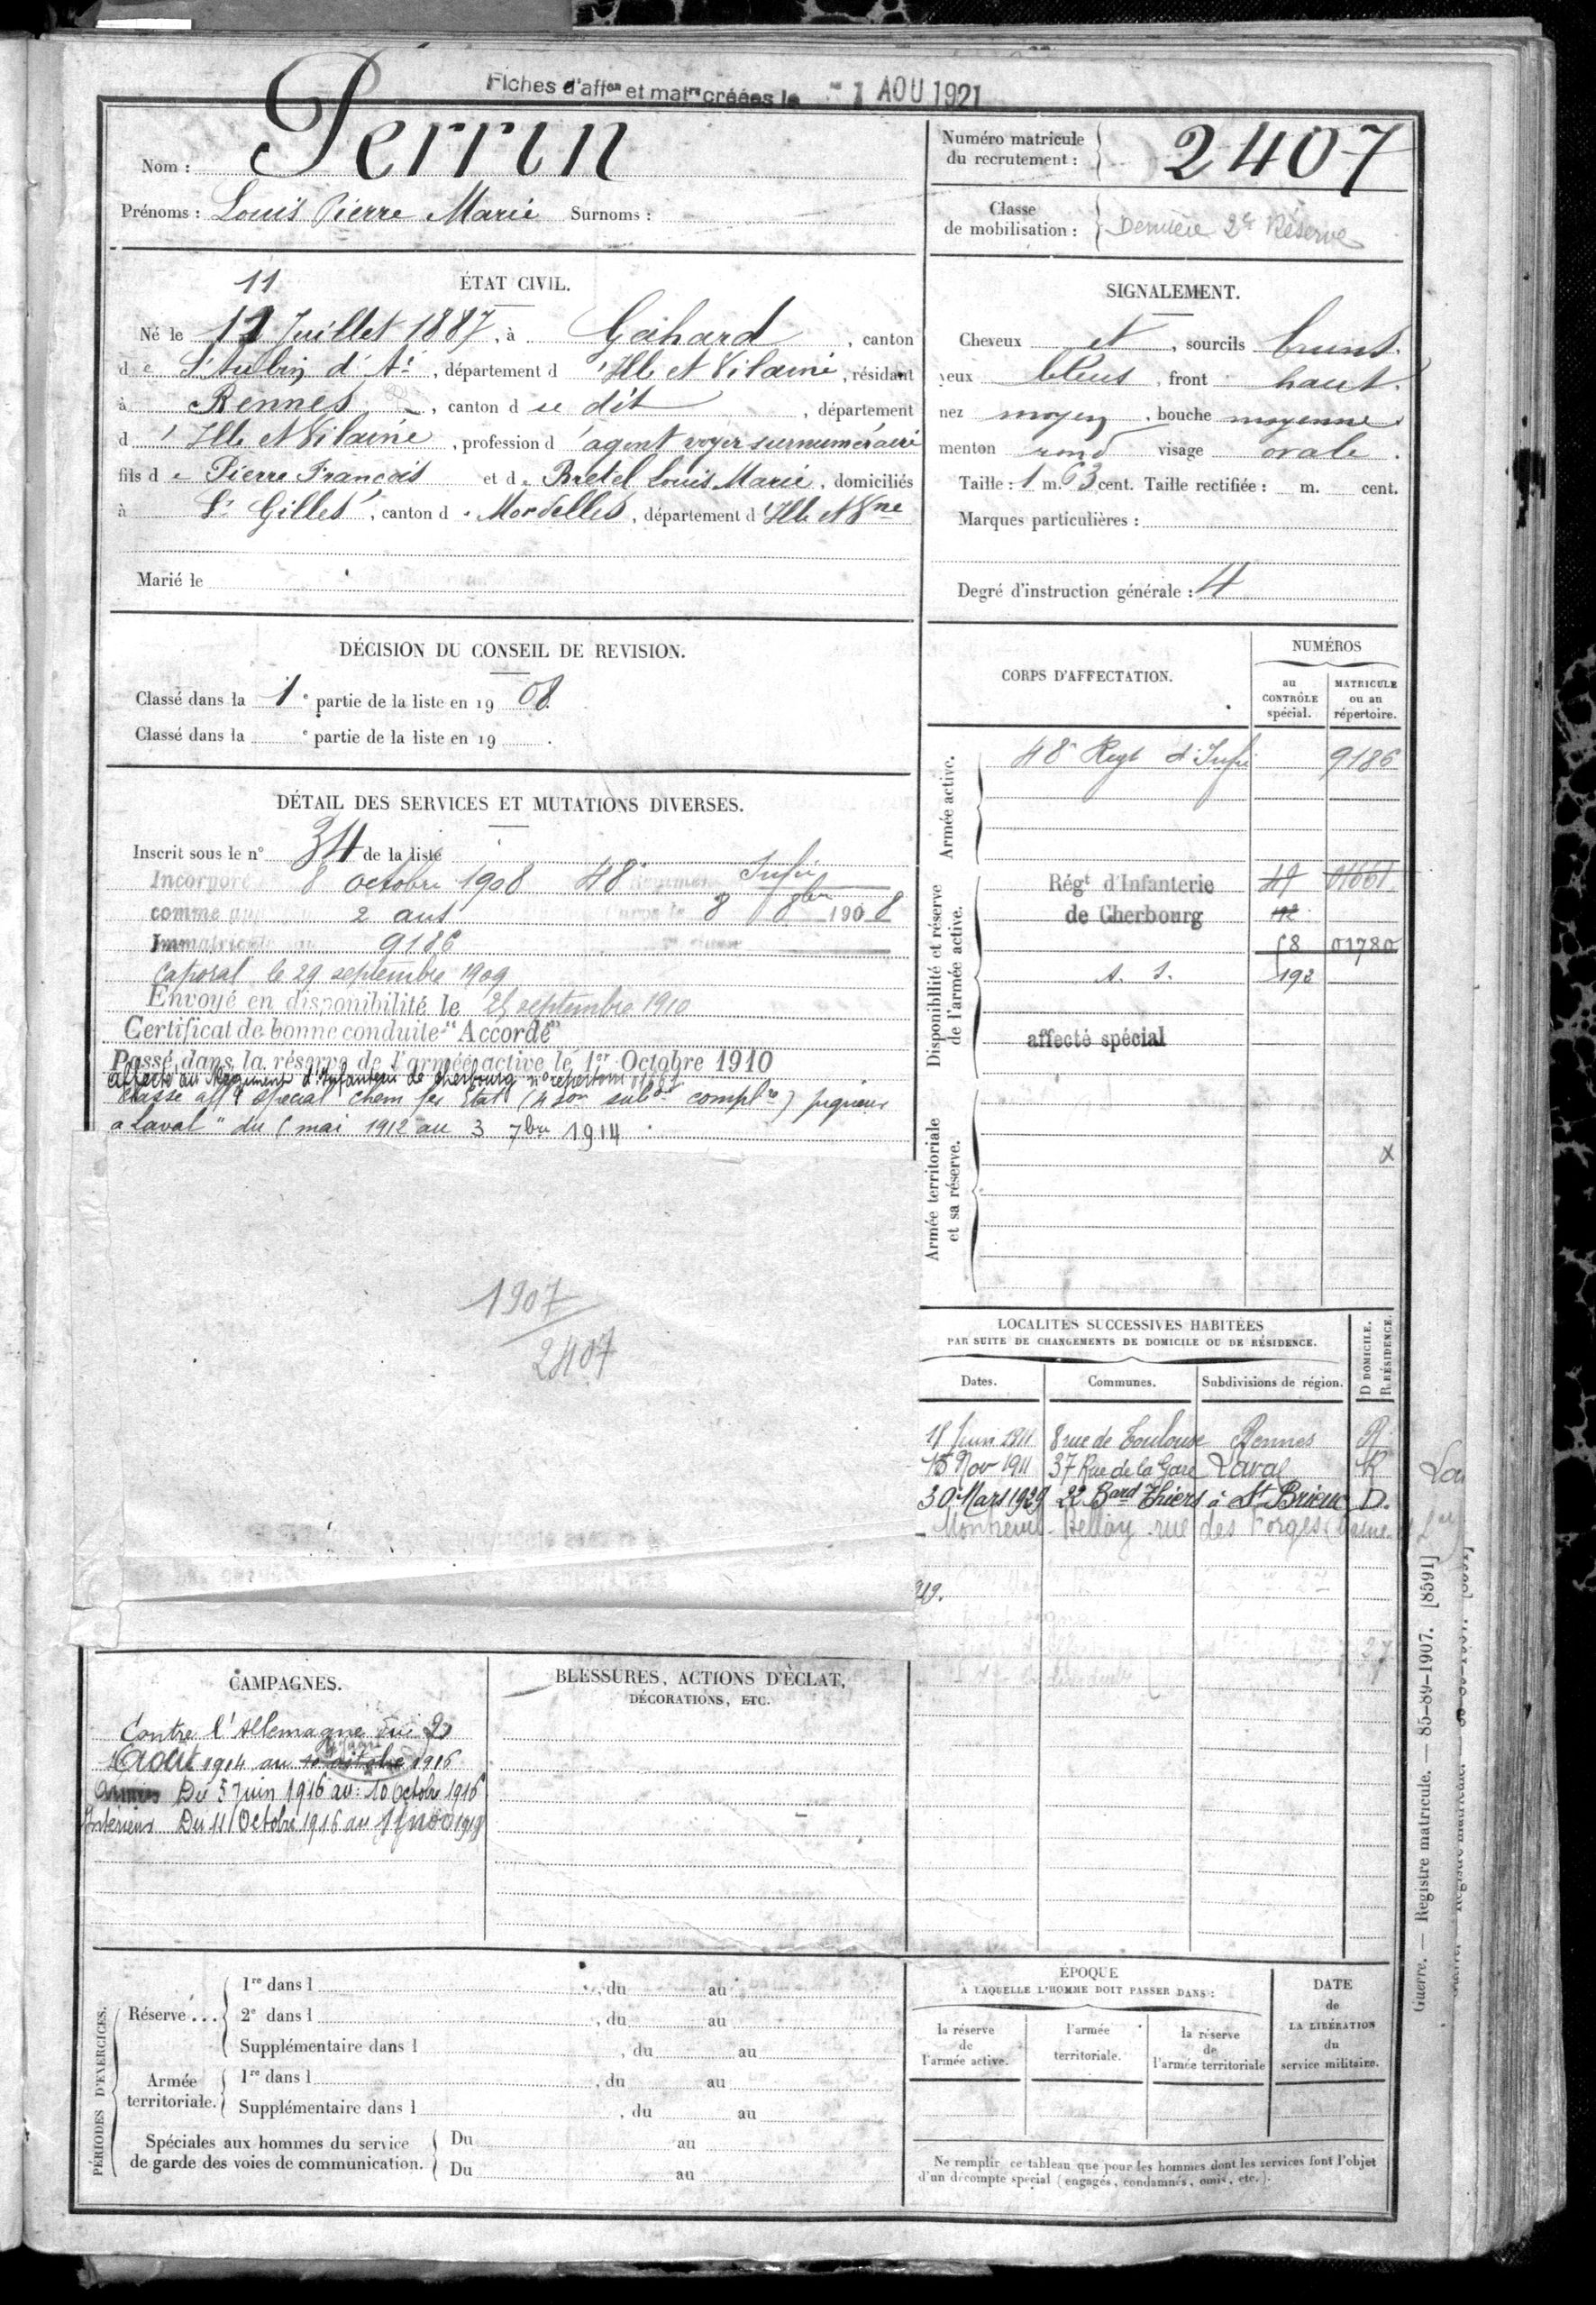 Fiches d'affon et matres créées le 1 AOU 1921
Nom : Perrin
Prénoms : Louis Pierre Marie Surnoms :
Numéro matricule
du recrutement : 2407
Classe
de mobilisation : Dernière 2e Réserve
ÉTAT CIVIL.
11
Né le 12 Juillet 1887, à Gahard, canton
de St Aubin d'A., département d'Ille et Vilaine, résidant
à Rennes, canton d se dit, département
d'Ille et Vilaine, profession d'agent voyer surnuméraire
fils de Pierre François et de Bretel Louis Marie, domiciliés
à St Gilles, canton de Mordelles, département d'Ille et Vne
Marié le
SIGNALEMENT.
Cheveux et, sourcils bruns.
yeux bleus, front haut.
nez moyen, bouche moyenne
menton rond visage ovale.
Taille : 1 m. 63 cent. Taille rectifiée : m. cent.
Marques particulières :
Degré d'instruction générale : 4
DÉCISION DU CONSEIL DE REVISION.
Classé dans la 1e partie de la liste en 1908.
Classé dans la e partie de la liste en 19 .
DÉTAIL DES SERVICES ET MUTATIONS DIVERSES.
Inscrit sous le n° 34 de la liste
Incorporé 8 octobre 1908 48 Régiment Infie
comme 2 ans Corps le 8 8bre 1908
Immatriculé 9186
Caporal le 29 septembre 1909
Envoyé en disponibilité le 25 septembre 1910
Certificat de bonne conduite "Accordé"
Passé dans la réserve de l'armée active le 1er Octobre 1910
affecté au Régiment d'Infanterie de Cherbourg n° répertoire 01661
Classé affé spécial chem fer Etat (4 son subon complre) piqueur
à Laval" du mai 1912 au 3 7bre 1914
1907
2407
CORPS D'AFFECTATION.
NUMÉROS
au
CONTRÔLE
spécial.
MATRICULE
ou au
répertoire.
Armée active.
48e Regt d'Infie 9186
Disponibilité et réserve
de l'armée active.
Régt d'Infanterie 47 01661
de Cherbourg 192
58 01780
A. S. 192
affecté spécial
Armée territoriale
et sa réserve.
x
LOCALITÉS SUCCESSIVES HABITÉES
PAR SUITE DE CHANGEMENTS DE DOMICILE OU DE RÉSIDENCE.
Dates. Communes. Subdivisions de région. D DOMICILE. R RÉSIDENCE.
18 Juin 1911 8 rue de Toulouse Rennes R
15 Nov 1911 37 Rue de la Gare Laval R
30 Mars 1929 22 Bard Thiers à St Brieuc D.
Montreuil-Bellay rue des Forges
CAMPAGNES.
Contre l'Allemagne du 2
Août 1914 au 10 octobre 1916
Armées Du 5 Juin 1916 au : 10 Octobre 1916
Intérieur Du 11 Octobre 1916 au
BLESSURES, ACTIONS D'ÉCLAT,
DÉCORATIONS, ETC.
PÉRIODES D'EXERCICES.
Réserve...
1re dans l , du au
2e dans l , du au
Supplémentaire dans l , du au
Armée
territoriale.
1re dans l , du au
Supplémentaire dans l , du au
Spéciales aux hommes du service
de garde des voies de communication.
Du au
Du au
ÉPOQUE
À LAQUELLE L'HOMME DOIT PASSER DANS :
la réserve
de
l'armée active.
l'armée
territoriale.
la réserve
de
l'armée territoriale
DATE
de
LA LIBÉRATION
du
service militaire.
Ne remplir ce tableau que pour les hommes dont les services font l'objet
d'un décompte spécial (engagés, condamnés, omis, etc.).
Guerre. — Registre matricule. — 85-89-1907. [8591]